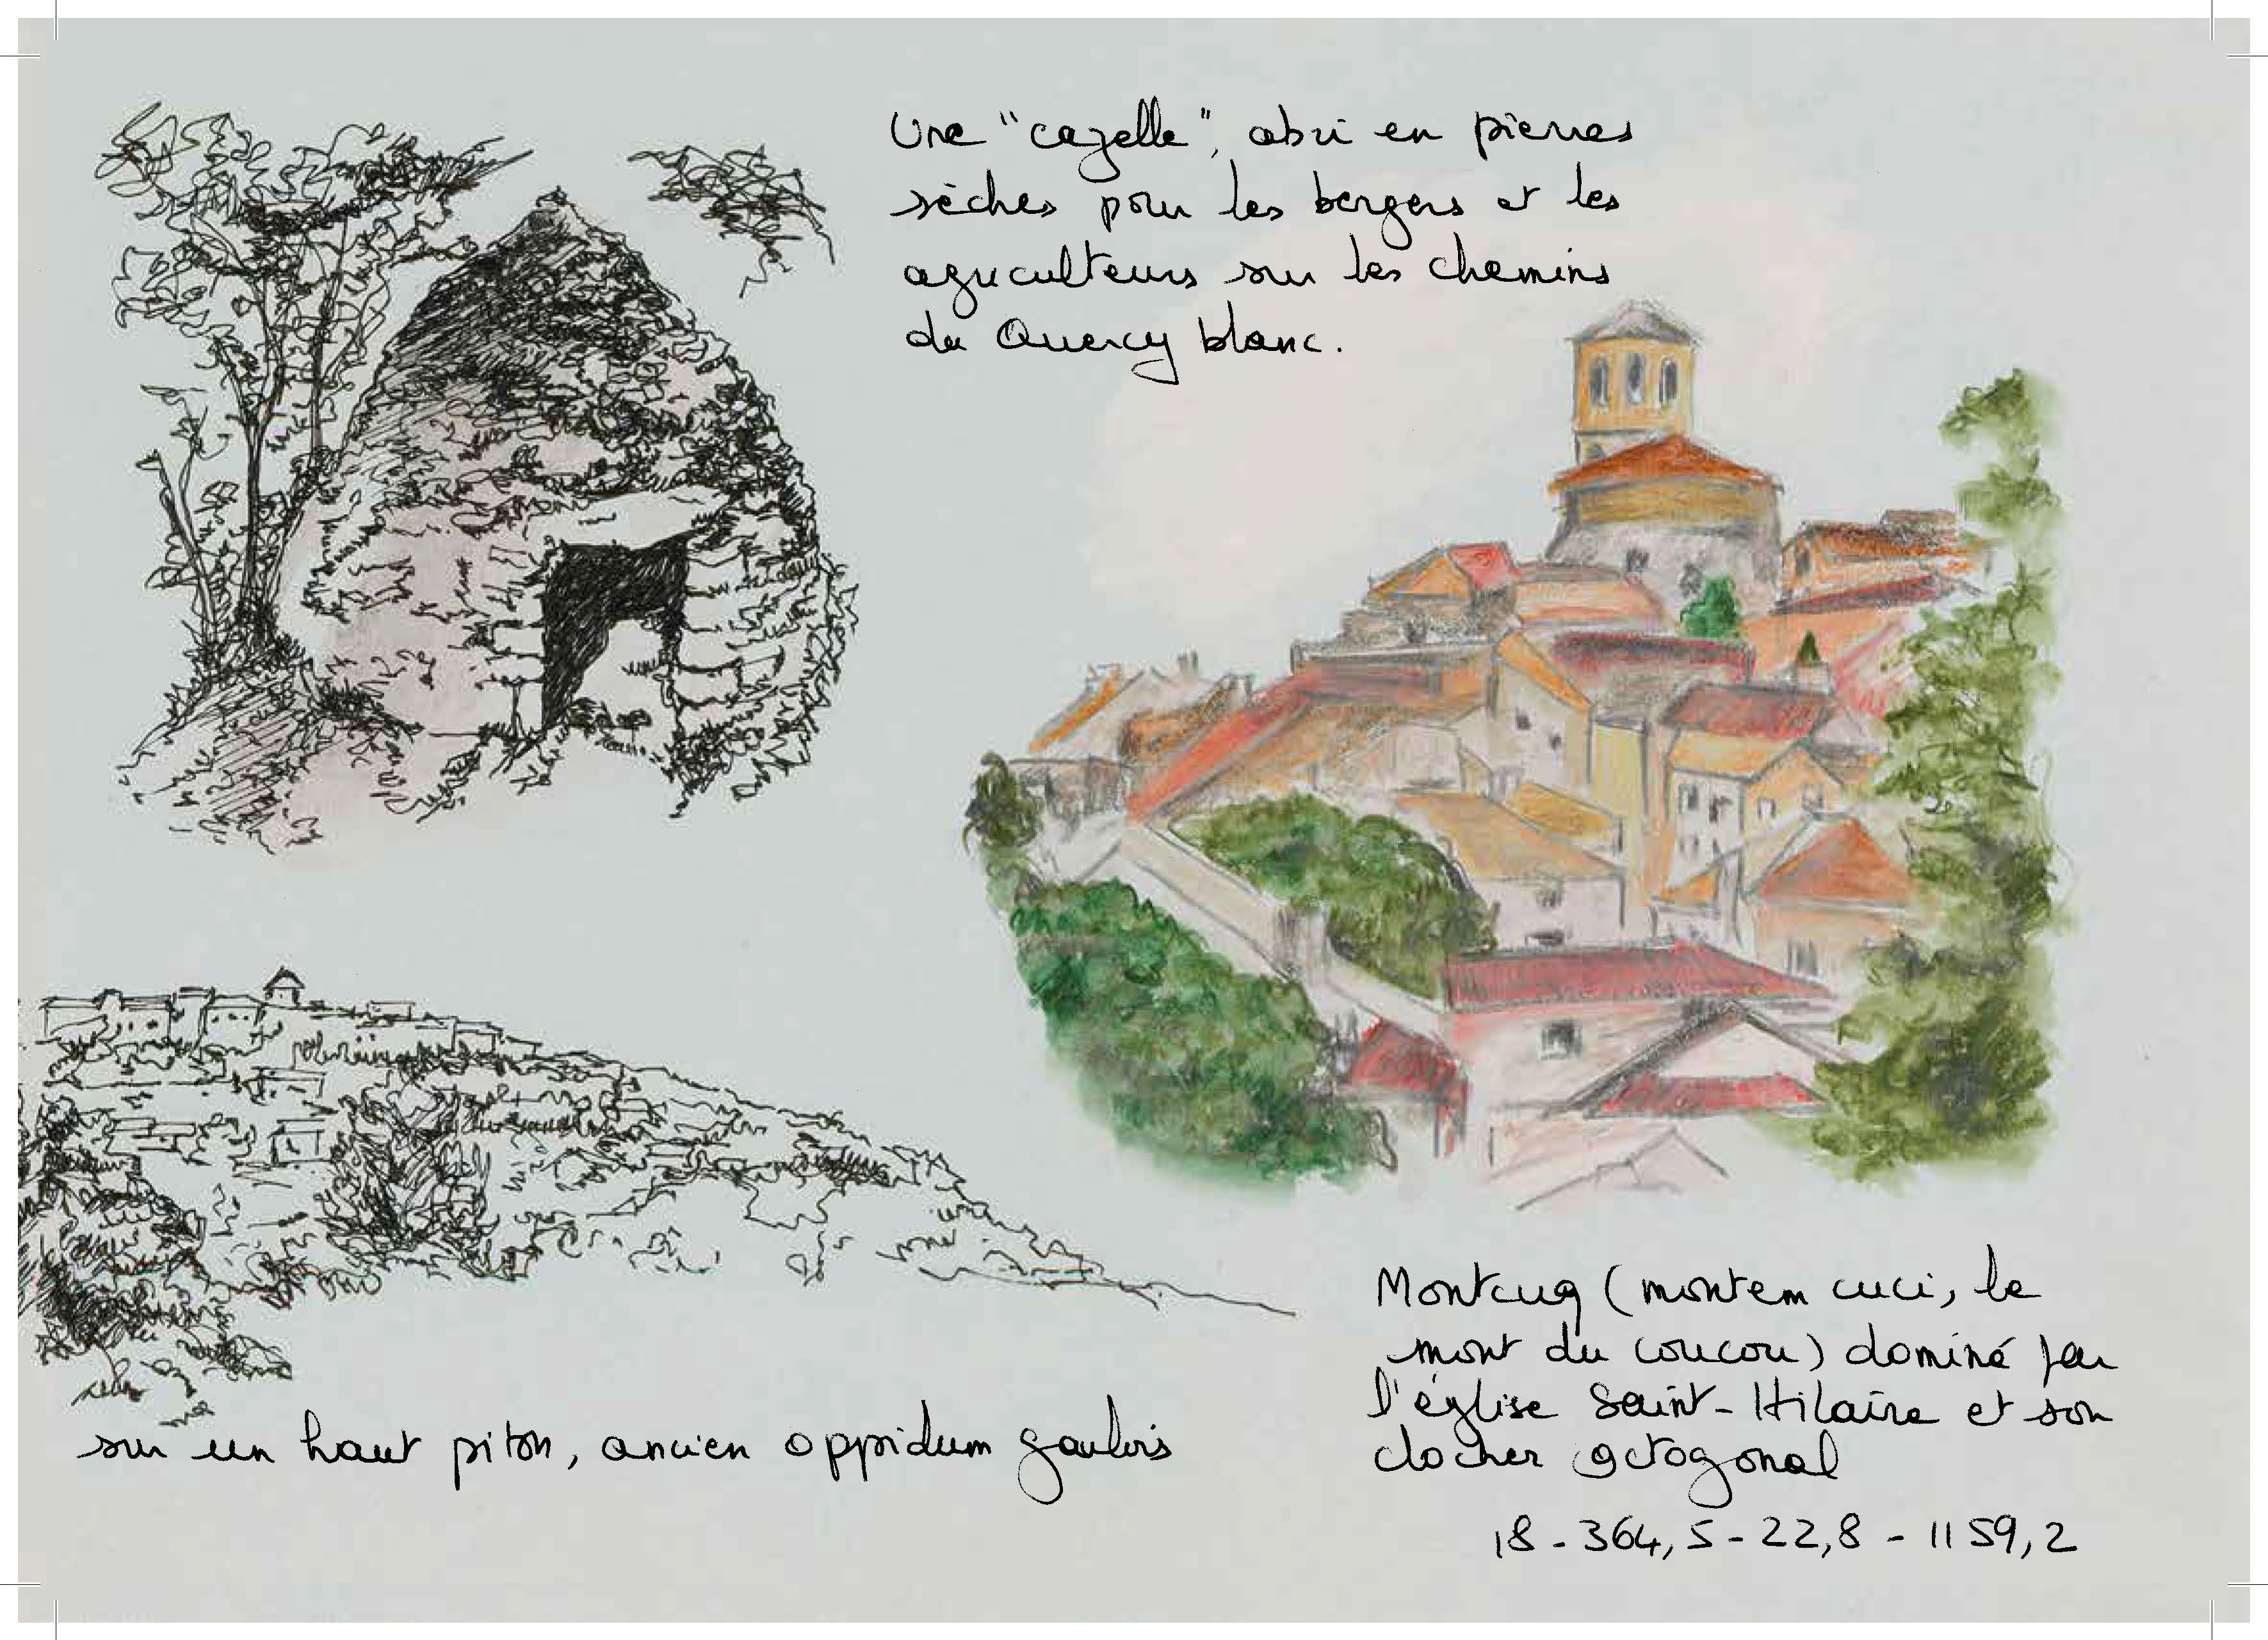 Une "cazelle", abri en pierres
sèches pour les bergers et les
agriculteurs sur les chemins
du Quercy blanc.
Montcuq (montem cuci, le
mont du coucou) dominé par
l'église Saint-Hilaire et son
clocher octogonal
sur un haut piton, ancien oppidum gaulois
18 - 364,5 - 22,8 - 1159,2